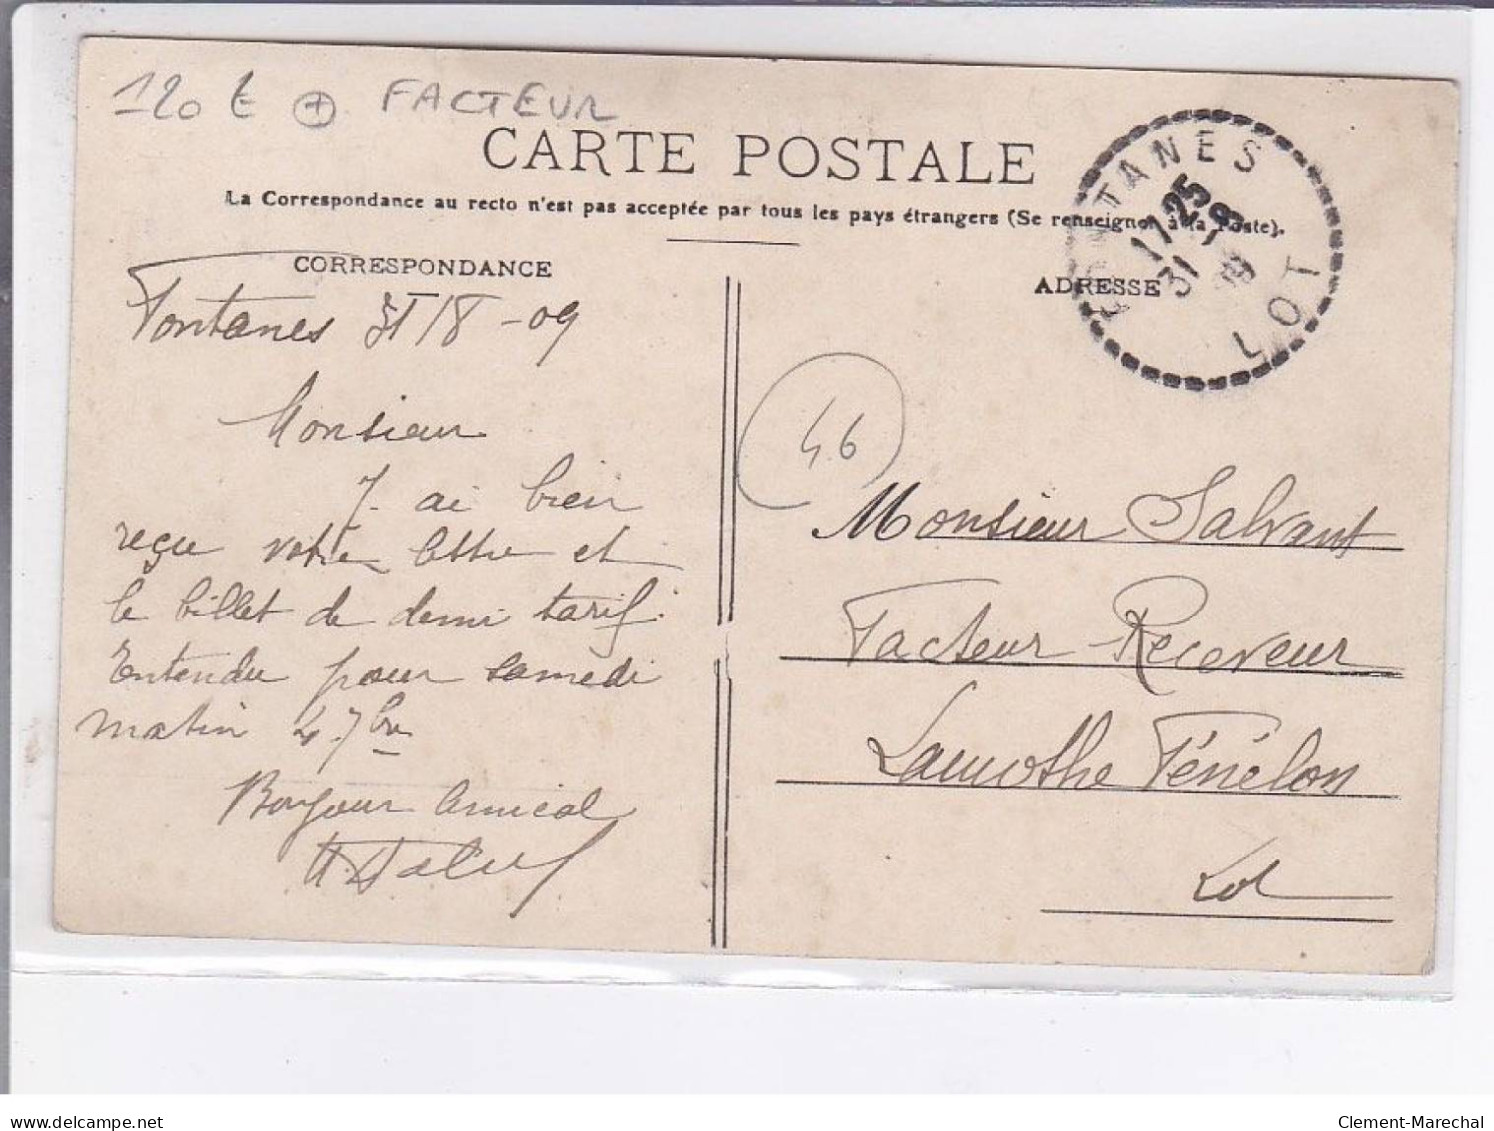 120 € + FACTEUR
CARTE POSTALE
La Correspondance au recto n'est pas acceptée par tous les pays étrangers (Se renseigner à la Poste).
CORRESPONDANCE
Fontanes 31/8-09
Monsieur
J. ai bien
reçu votre lettre et
le billet de demi tarif.
Entendu pour samedi
matin 4 7bre
Bonjour Amical
ADRESSE
FONTANES
11 25
31 -8
09
LOT
46
Monsieur Salvant
Facteur-Receveur
Lamothe Fénélon
Lot
delcampe.net
Clement-Marechal